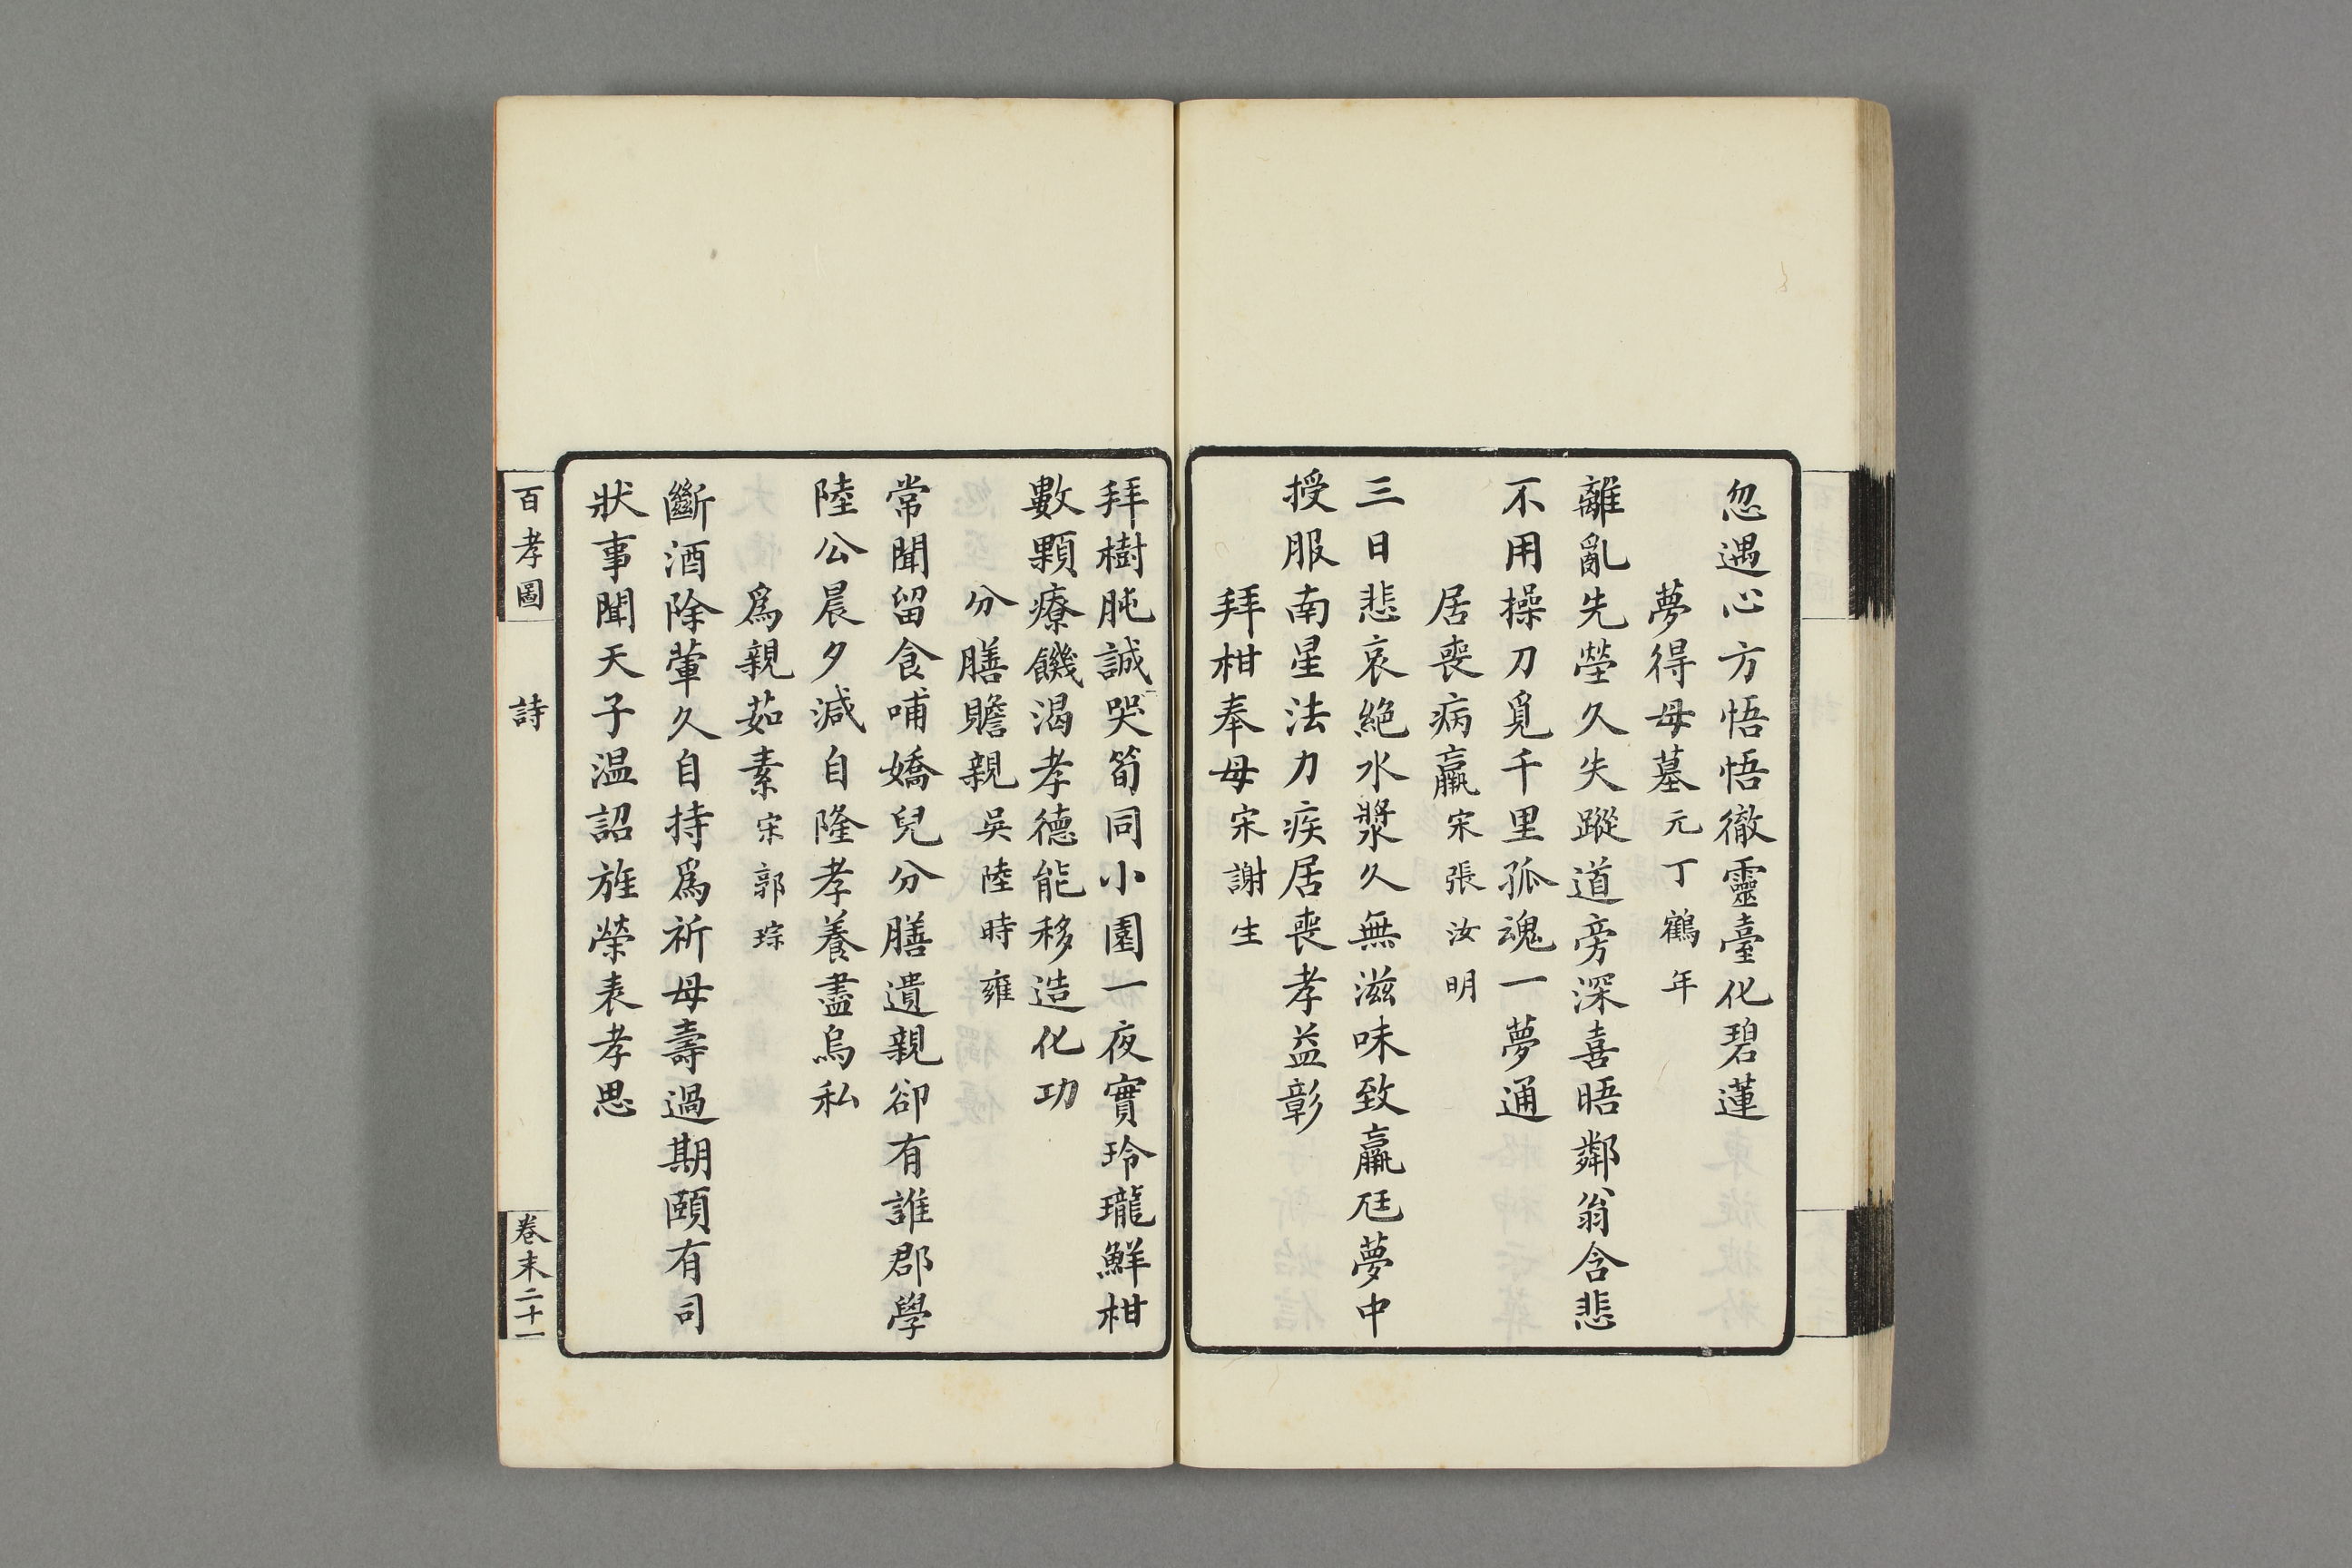 忽遇心方悟悟徹靈臺化碧蓮
夢得母墓元丁鶴年
離亂先塋久失蹤道旁深喜晤鄰翁含悲
不用操刀覓千里孤魂一夢通
居喪病羸宋張汝明
三日悲哀絶水漿久無滋味致羸尫夢中
授服南星法力疾居喪孝益彰
拜柑奉母宋謝生
拜樹肫誠哭筍同小園一夜實玲瓏鮮柑
數顆療饑渴孝德能移造化功
分膳贍親吳陸時雍
常聞留食哺嬌兒分膳遺親卻有誰郡學
陸公晨夕減自隆孝養盡烏私
爲親茹素宋郭琮
斷酒除葷久自持爲祈母壽過期頤有司
狀事聞天子温詔旌榮表孝思
百孝圖 詩 卷末二十一